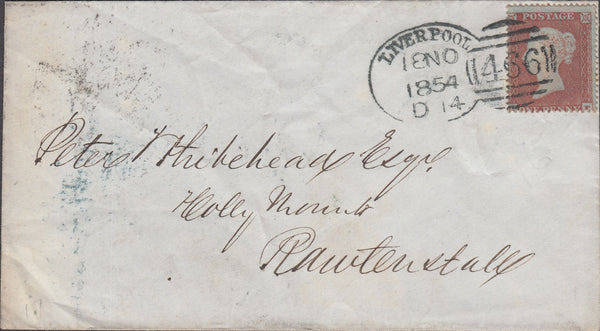 POSTAGE
LIVERPOOL
18NO
1854
D 14
466
ONE PENNY
Peter Whitehead Esqr
Holly Mount
Rawtenstall